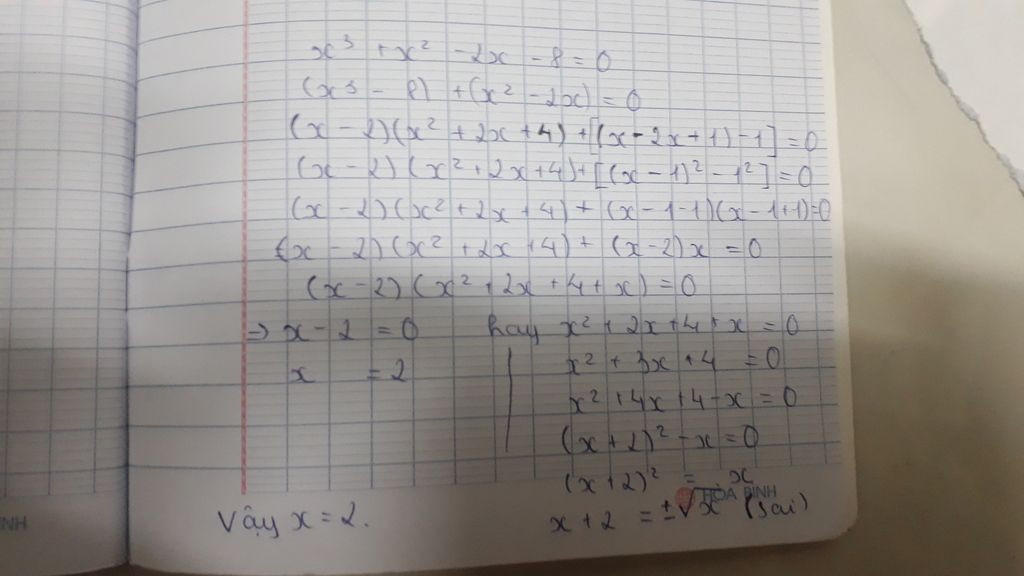 x³ + x² - 2x - 8 = 0
(x³ - 8) + (x² - 2x) = 0
(x - 2)(x² + 2x + 4) + [(x - 2x + 1) - 1] = 0
(x - 2)(x² + 2x + 4) + [(x - 1)² - 1²] = 0
(x - 2)(x² + 2x + 4) + (x - 1 - 1)(x - 1 + 1) = 0
(x - 2)(x² + 2x + 4) + (x - 2)x = 0
(x - 2)(x² + 2x + 4 + x) = 0
⇒ x - 2 = 0 hay x² + 2x + 4 + x = 0
x² + 3x + 4 = 0
x = 2
x² + 4x + 4 - x = 0
(x + 2)² - x = 0
(x + 2)² = x
HÒA BÌNH
x + 2 = ±√x (sai)
Vậy x = 2.
INH